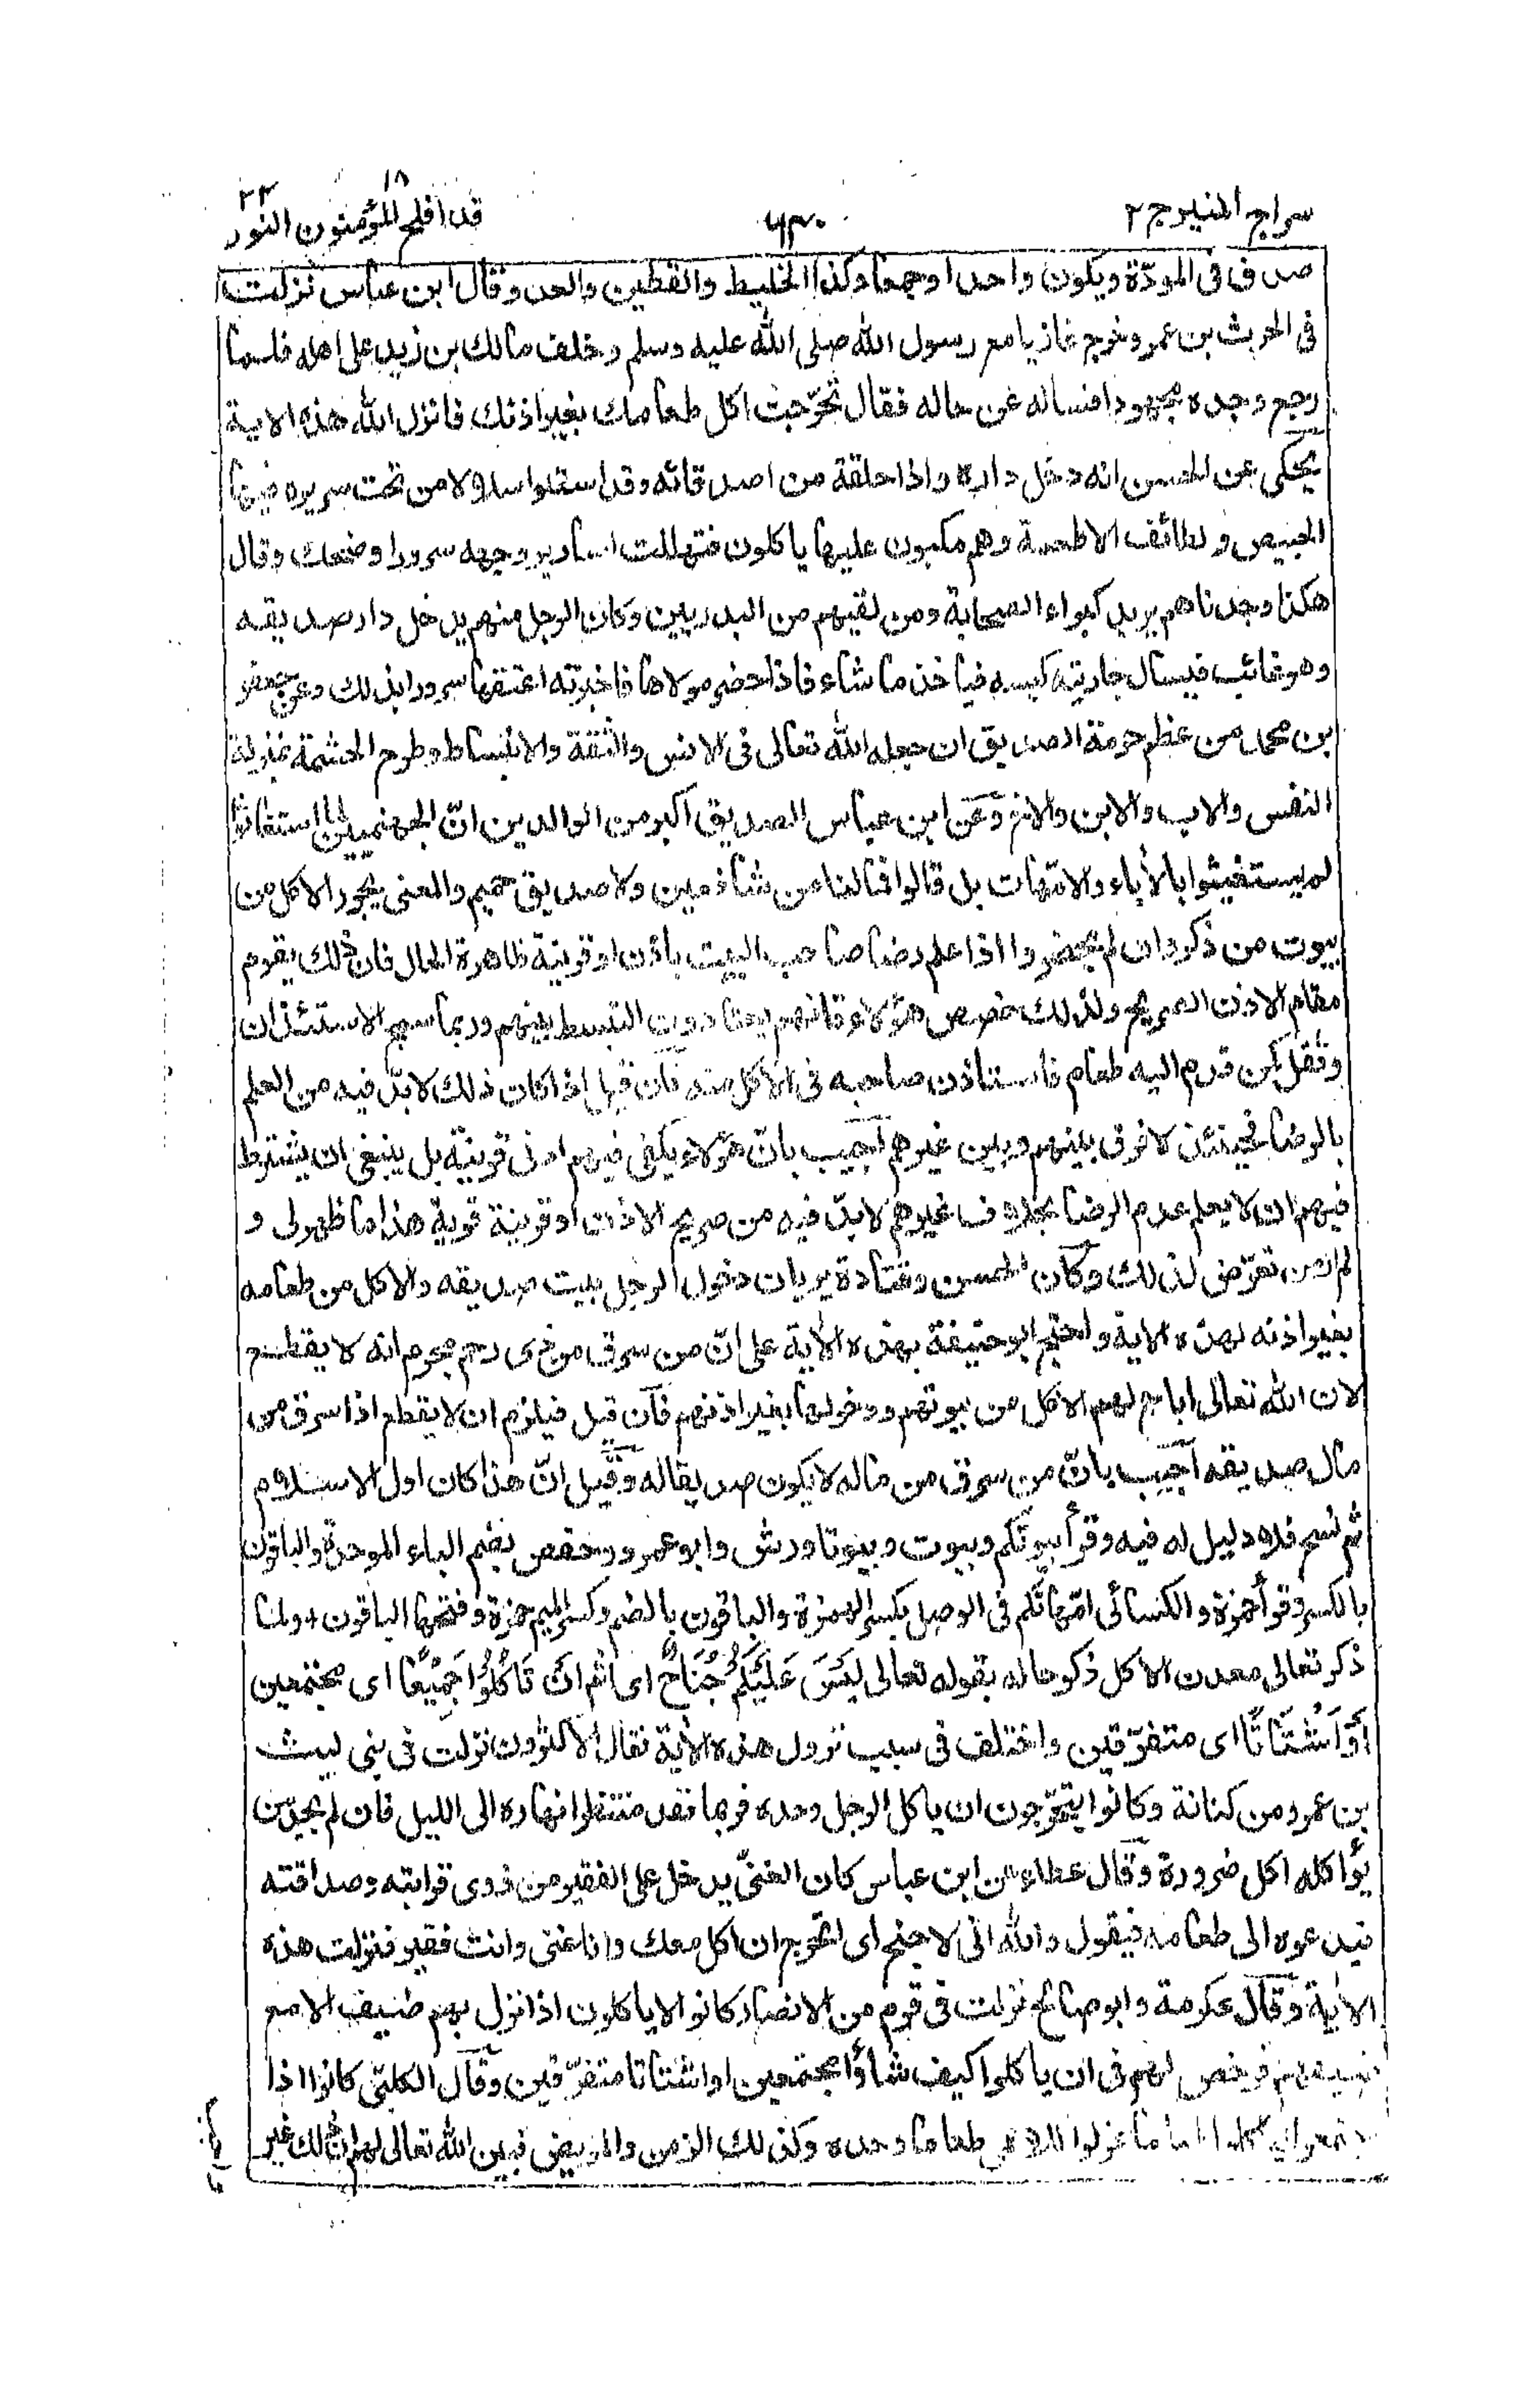 سراج المنير ج ٢
٦٣٠
قد افلح المؤمنون ١٨ النور ٢٤
صدق فى المودّة ويكون واحدا وجمعا وكذا الخليط والقطين والعدو وقال ابن عباس نزلت
فى الحرث بن عمرو خرج غازيا مع رسول الله صلى الله عليه وسلم وخلف مالك بن زيد على اهله فلما
رجع وجده مجهودا فساله عن حاله فقال تحرّجت اكل طعامك بغير اذنك فانزل الله هذه الاية
يحكى عن الحسن انه دخل داره واذا حلقة من اصدقائه وقد استلوا سلالا من تحت سريره فيها
الخبيص ولطائف الاطعمة وهم مكبون عليها ياكلون فتهللت اسارير وجهه سرورا وضحك وقال
هكذا وجدناهم يريد كبراء الصحابة ومن لقيهم من البدريين وكان الرجل منهم يدخل دار صديقه
وهو غائب فيسال جاريته كيسه فياخذ ما شاء فاذا حضر مولاها فاخبرته اعتقها سرورا بذلك وعن جعفر
بن محمد من عظم حرمة الصديق ان جعله الله تعالى فى الانس والثقة والانبساط وطرح الحشمة بمنزلة
النفس والاب والابن والاخ وعن ابن عباس الصديق اكبر من الوالدين انّ الجهنميين لما استغاثوا
لم يستغيثوا بالأباء والامّهات بل قالوا فمالنا من شافعين ولا صديق حميم والمعنى يجوز الاكل من
بيوت من ذكر وان لم يحضروا اذا علم رضا صاحب البيت باذن او قرينة ظاهرة الحال فان ذلك يقوم
مقام الاذن الصريح ولذلك خصص هؤلاء فانهم يعتادون التبسط بينهم وربما سمج الاستئذان
وثقل كمن قدم اليه طعام فاستاذن صاحبه فى الاكل منه فان قيل اذا كان ذلك لا بدّ فيه من العلم
بالرضا فحينئذ لا فرق بينهم وبين غيرهم اجيب بانّ هؤلاء يكفى فيهم ادنى قرينة بل ينبغى ان يشترط
فيهم ان لا يعلم عدم الرضا بخلاف غيرهم لا بدّ فيه من صريح الاذن او قرينة قوية هذا ما ظهر لى و
لم ار من تعرّض لذلك وكان الحسن وقتادة يريان دخول الرجل بيت صديقه والاكل من طعامه
بغير اذنه لهذه الاية واحتج ابو حنيفة بهذه الأية على انّ من سرق من ذى رحم محرم انه لا يقطع
لان الله تعالى اباح لهم الاكل من بيوتهم ودخولها بغير اذنهم فان قيل فيلزم ان لا يقطع اذا سرق من
مال صديقه اجيب بانّ من سرق من ماله لا يكون صديقا له وقيل انّ هذا كان اول الاسلام
ثم نسخ فلا دليل له فيه وقرأ بيوتكم وبيوت وبيوتا ورش وابو عمرو وحفص بضم الباء الموحدة والباقون
بالكسر وقرأ حمزة والكسائى امّهاتكم فى الوصل بكسر الهمزة والباقون بالضم وكسر الميم حمزة وفتحها الباقون + ولما
ذكر تعالى معدن الاكل ذكر حاله بقوله تعالى لَيْسَ عَلَيْكُمْ جُنَاحٌ اى اثم اَنْ تَاْكُلُوْا جَمِيْعًا اى مجتمعين
اَوْ اَشْتَاتًا اى متفرّقين واختلف فى سبب نزول هذه الأية فقال الاكثرون نزلت فى بنى ليث
بن عمرو من كنانة وكانوا يتحرّجون ان ياكل الرجل وحده فربما قعد منتظرا نهاره الى الليل فان لم يجد من
يؤاكله اكل ضرورة وقال عطاء عن ابن عباس كان الغنىّ يدخل على الفقير من ذوى قرابته وصداقته
فيدعوه الى طعامه فيقول والله انى لاجنح اى اتحرج ان اكل معك وانا غنى وانت فقير فنزلت هذه
الأية وقال عكرمة وابو صالح نزلت فى قوم من الانصار كانوا لا ياكلون اذا نزل بهم ضيف الا مع
ضيفهم فرخص لهم فى ان ياكلوا كيف شاؤا مجتمعين او اشتاتا متفرّقين وقال الكلبىّ كانوا اذا
اجتمعوا لياكلوا طعاما عزلوا للاعمى طعاما وحده وكذلك الزمن والمريض فبين الله تعالى لهم ان ذلك غير